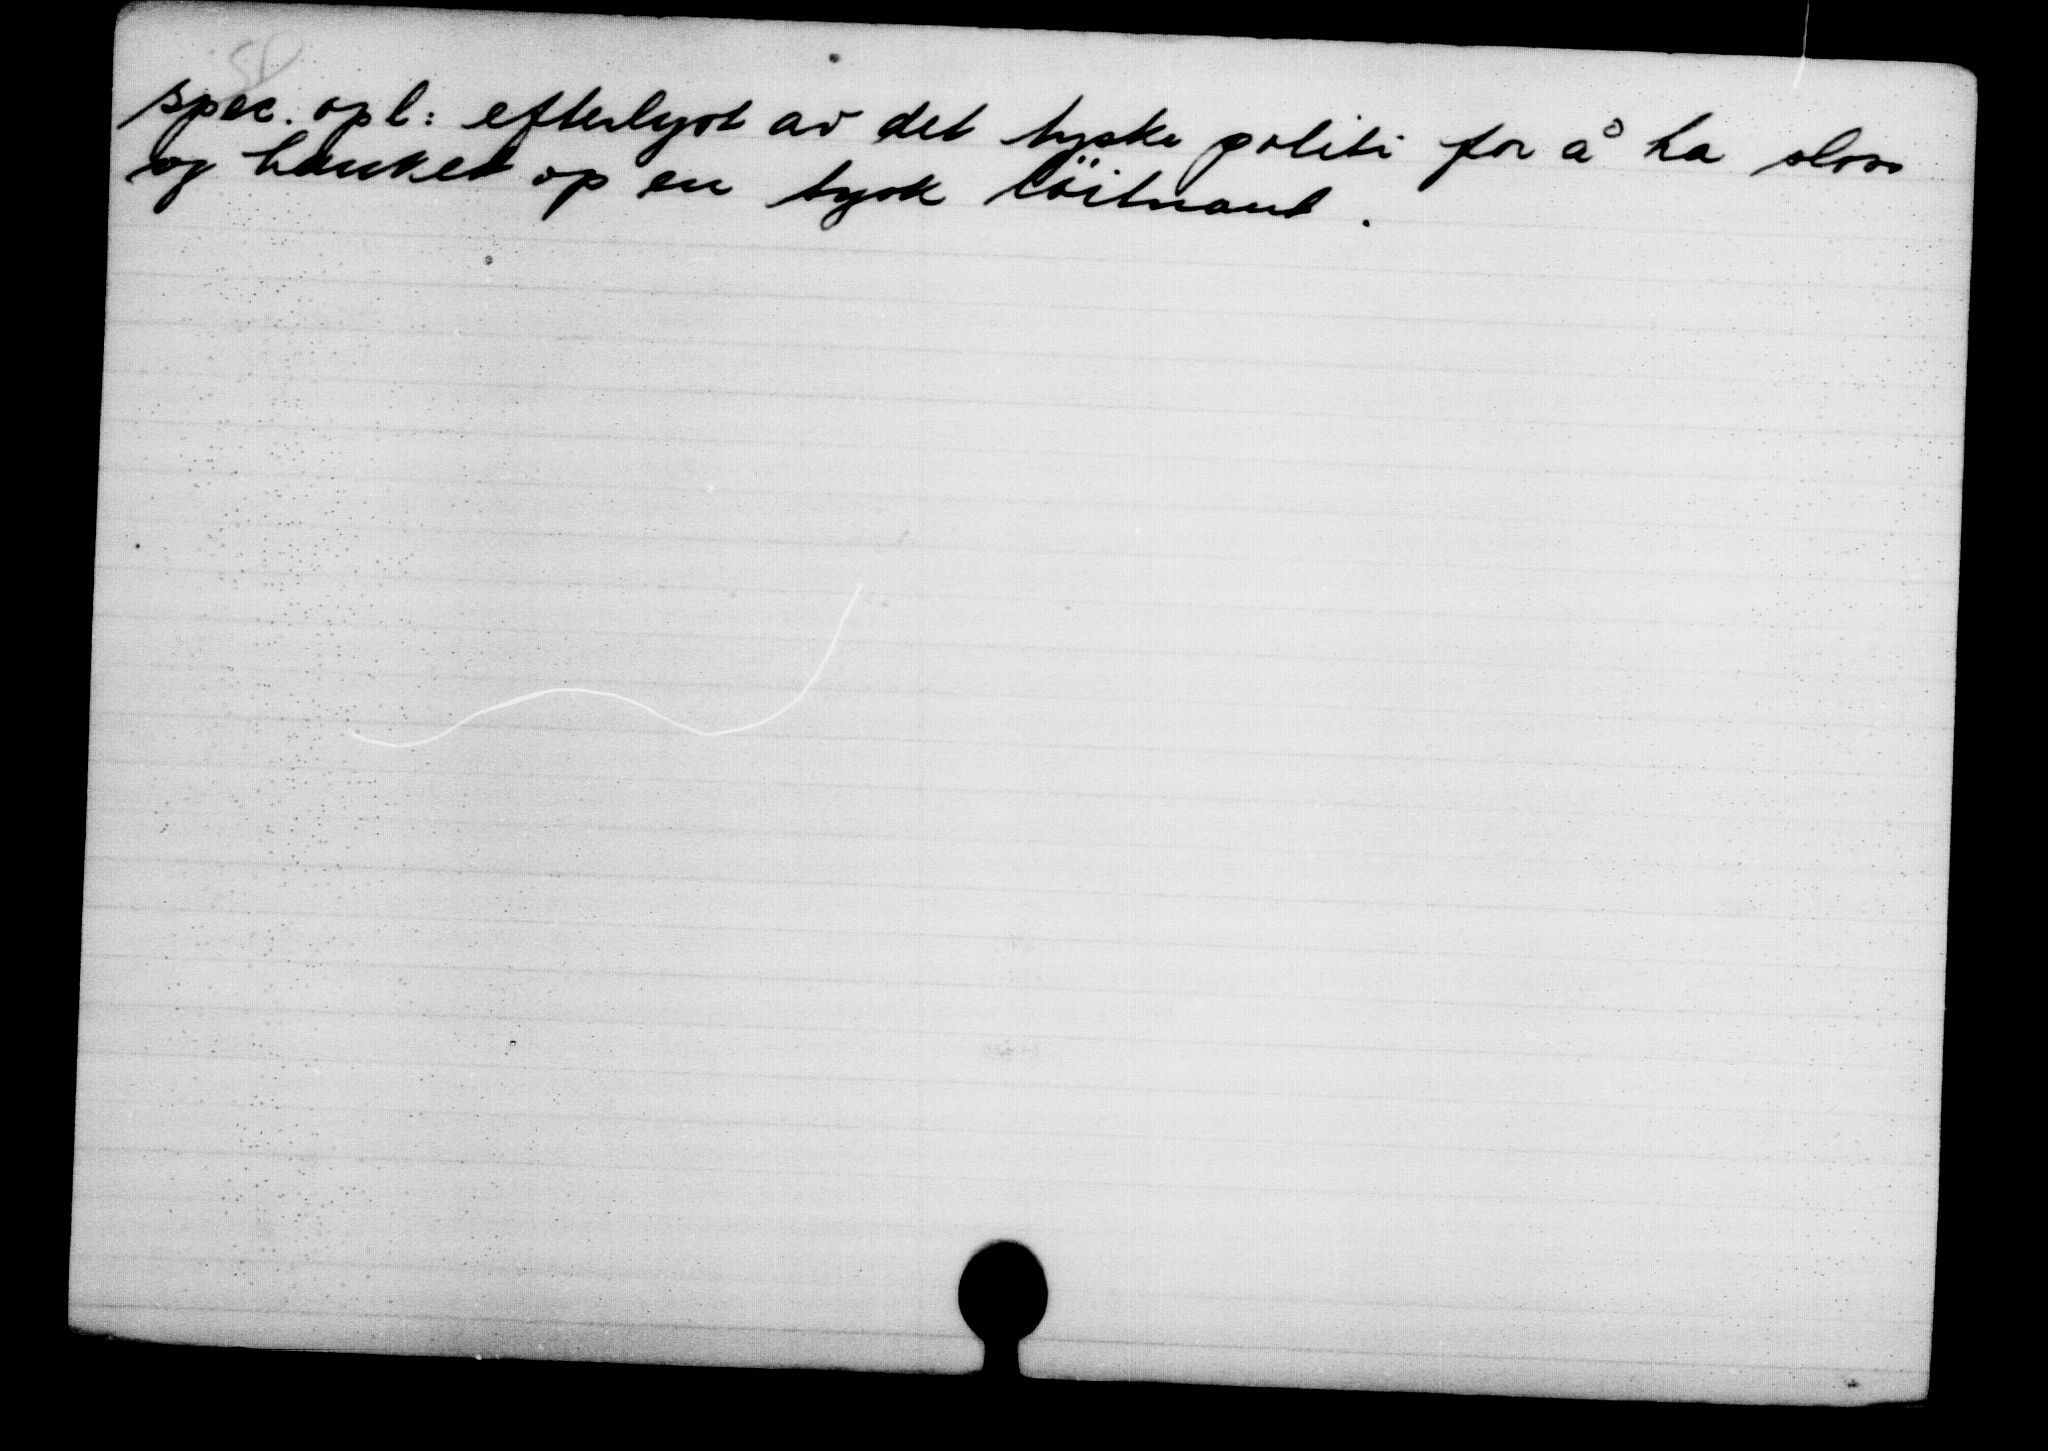 spec. opl: efterlyst av det tyske politi for å ha sloss
og hanket op en tysk löitnant.